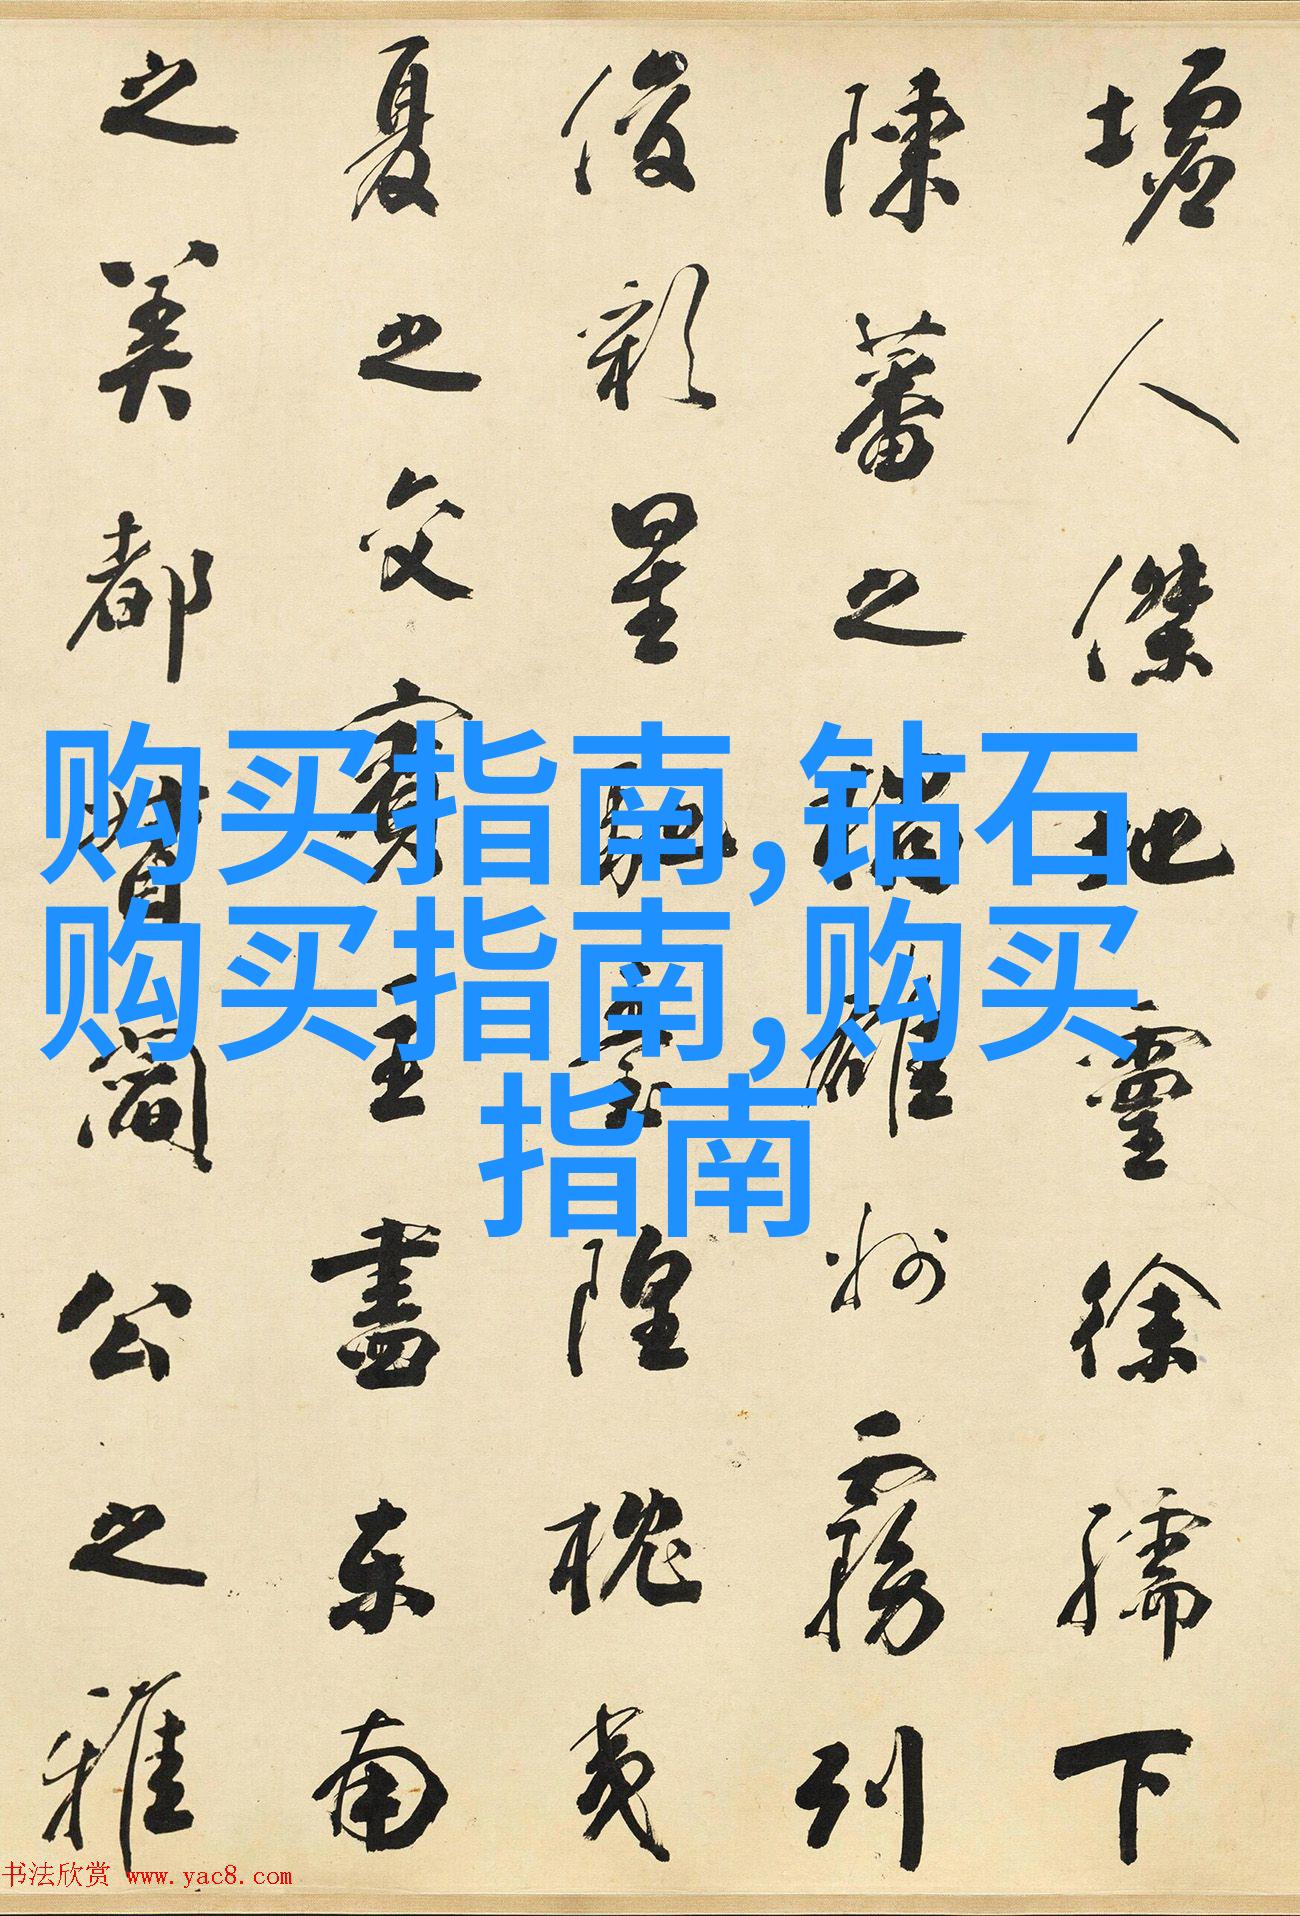 墟人傑地靈徐孺下
陳蕃之榻雄州霧列
俊彩星馳臺隍枕夷
夏之交賓主盡東南
之美都督閻公之雅
购买指南,钻石
购买指南,购买
指南
书法欣赏 www.yac8.com